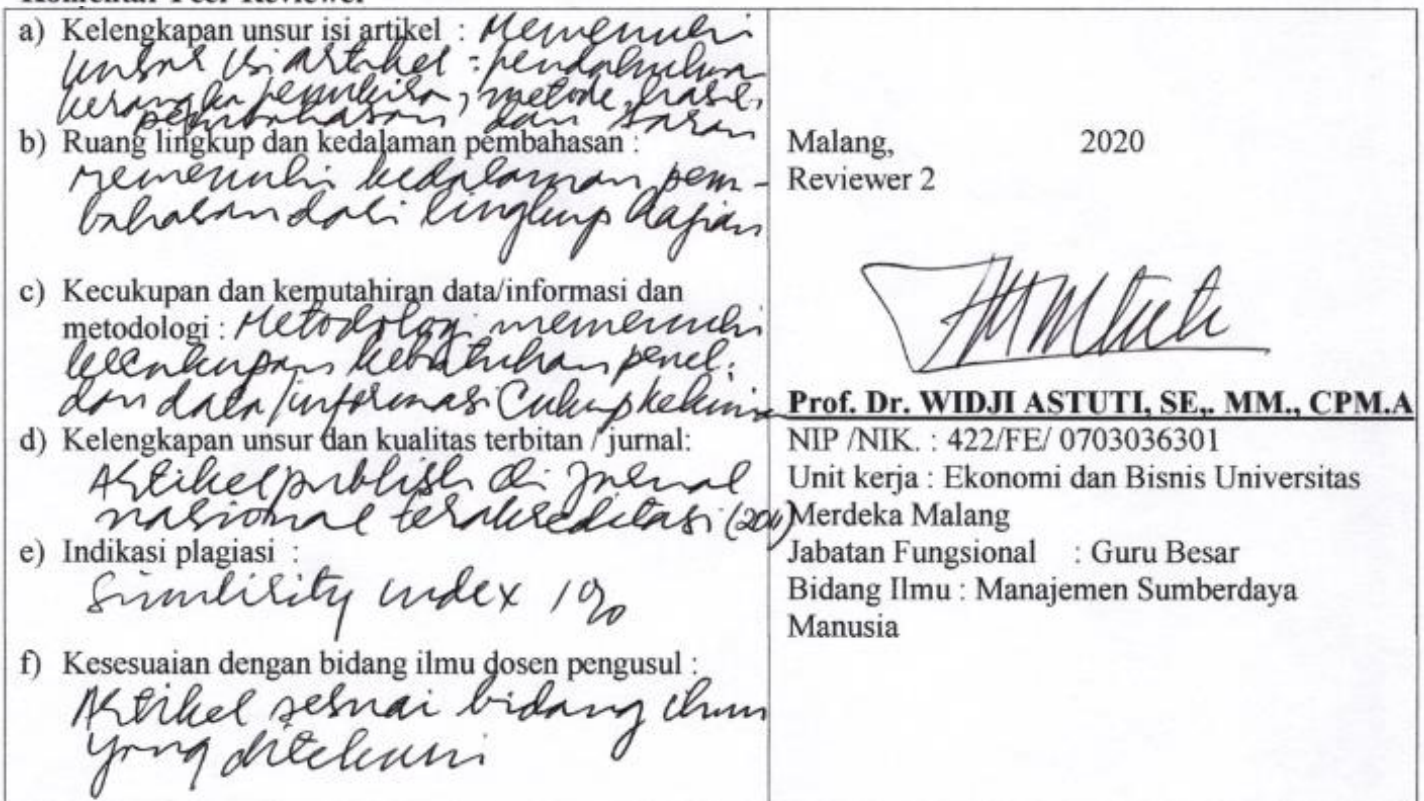 Komentar Peer Reviewer
a) Kelengkapan unsur isi artikel : Memenuhi
unsur isi artikel : pendahuluan
kerangka pemikiran, metode, hasil,
pembahasan dan saran
b) Ruang lingkup dan kedalaman pembahasan :
memenuhi kedalaman pem-
bahasan dari lingkup kajian
c) Kecukupan dan kemutahiran data/informasi dan
metodologi : Metodologi memenuhi
kecukupan kebutuhan penel.
dan data/informasi Cukup
d) Kelengkapan unsur dan kualitas terbitan / jurnal:
Artikel publish di Jurnal
nasional terakreditasi
e) Indikasi plagiasi :
Similirity index
f) Kesesuaian dengan bidang ilmu dosen pengusul :
Artikel sesuai bidang ilmu
yang ditekuni
Malang, 2020
Reviewer 2
Prof. Dr. WIDJI ASTUTI, SE,. MM., CPM.A
NIP /NIK. : 422/FE/ 0703036301
Unit kerja : Ekonomi dan Bisnis Universitas
Merdeka Malang
Jabatan Fungsional : Guru Besar
Bidang Ilmu : Manajemen Sumberdaya
Manusia